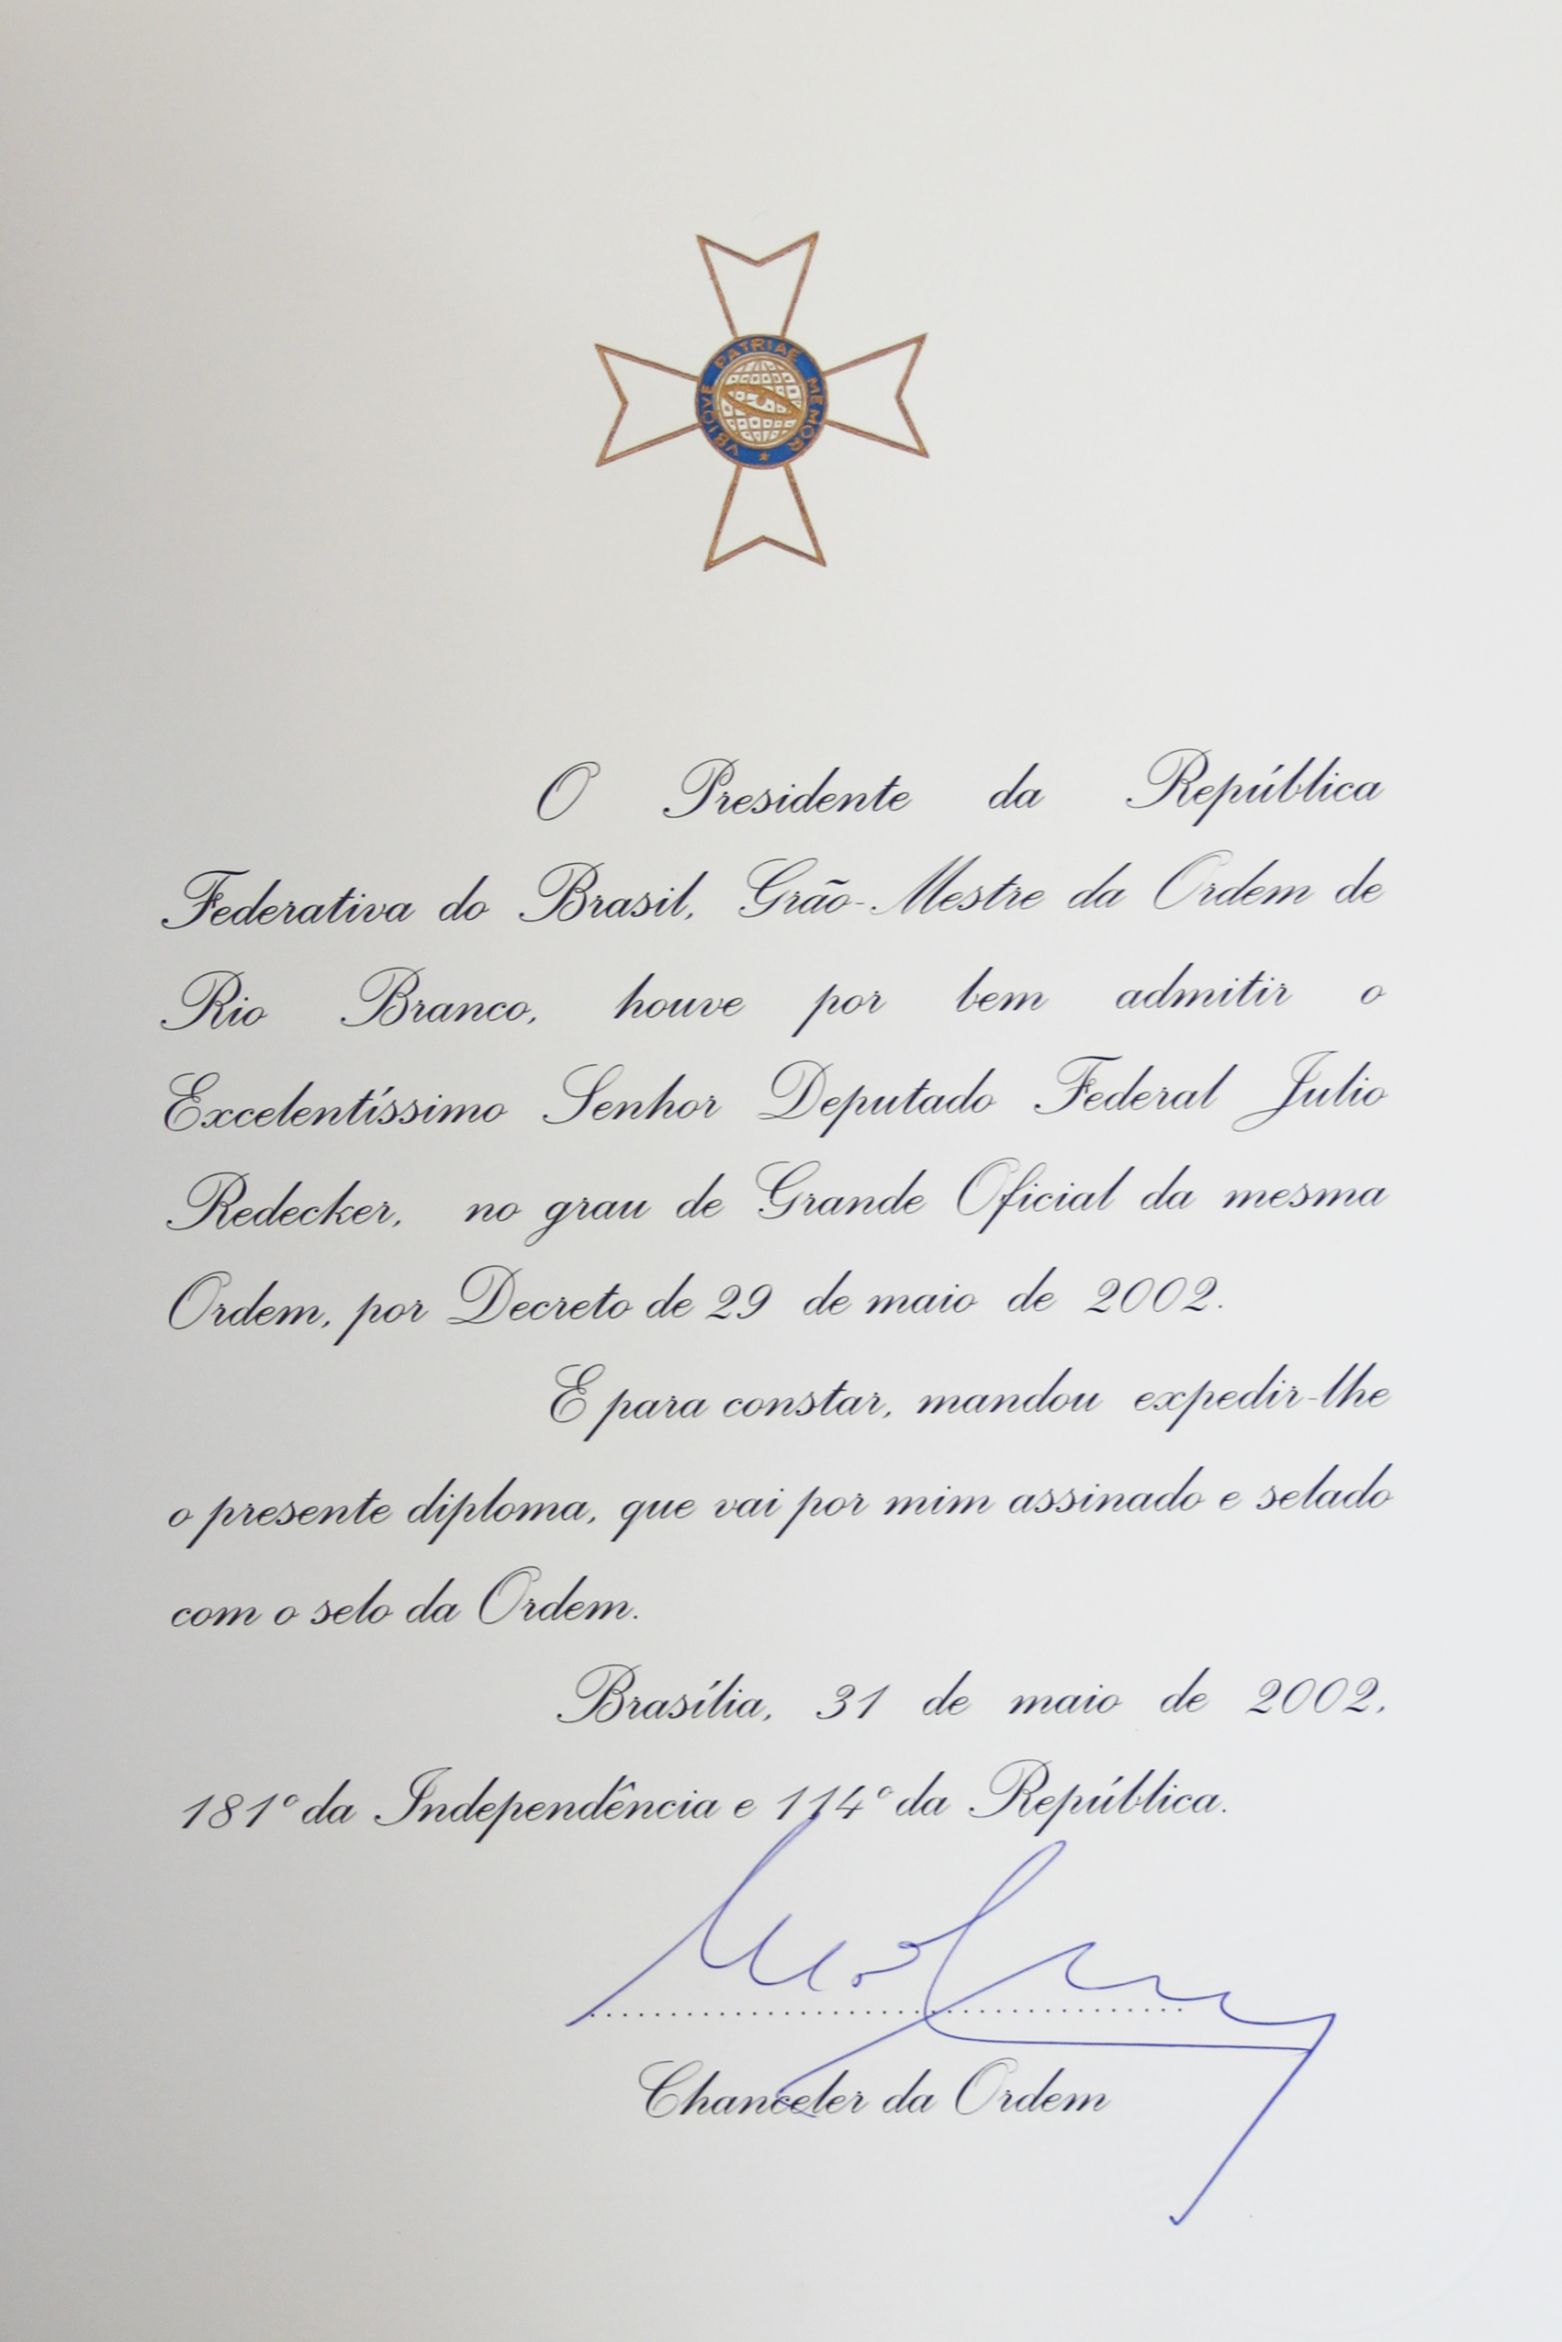 VBIQVE PATRIAE MEMOR
O Presidente da República
Federativa do Brasil, Grão-Mestre da Ordem de
Rio Branco, houve por bem admitir o
Excelentíssimo Senhor Deputado Federal Julio
Redecker, no grau de Grande Oficial da mesma
Ordem, por Decreto de 29 de maio de 2002.
E para constar, mandou expedir-lhe
o presente diploma, que vai por mim assinado e selado
com o selo da Ordem.
Brasília, 31 de maio de 2002,
181º da Independência e 114º da República.
Chanceler da Ordem